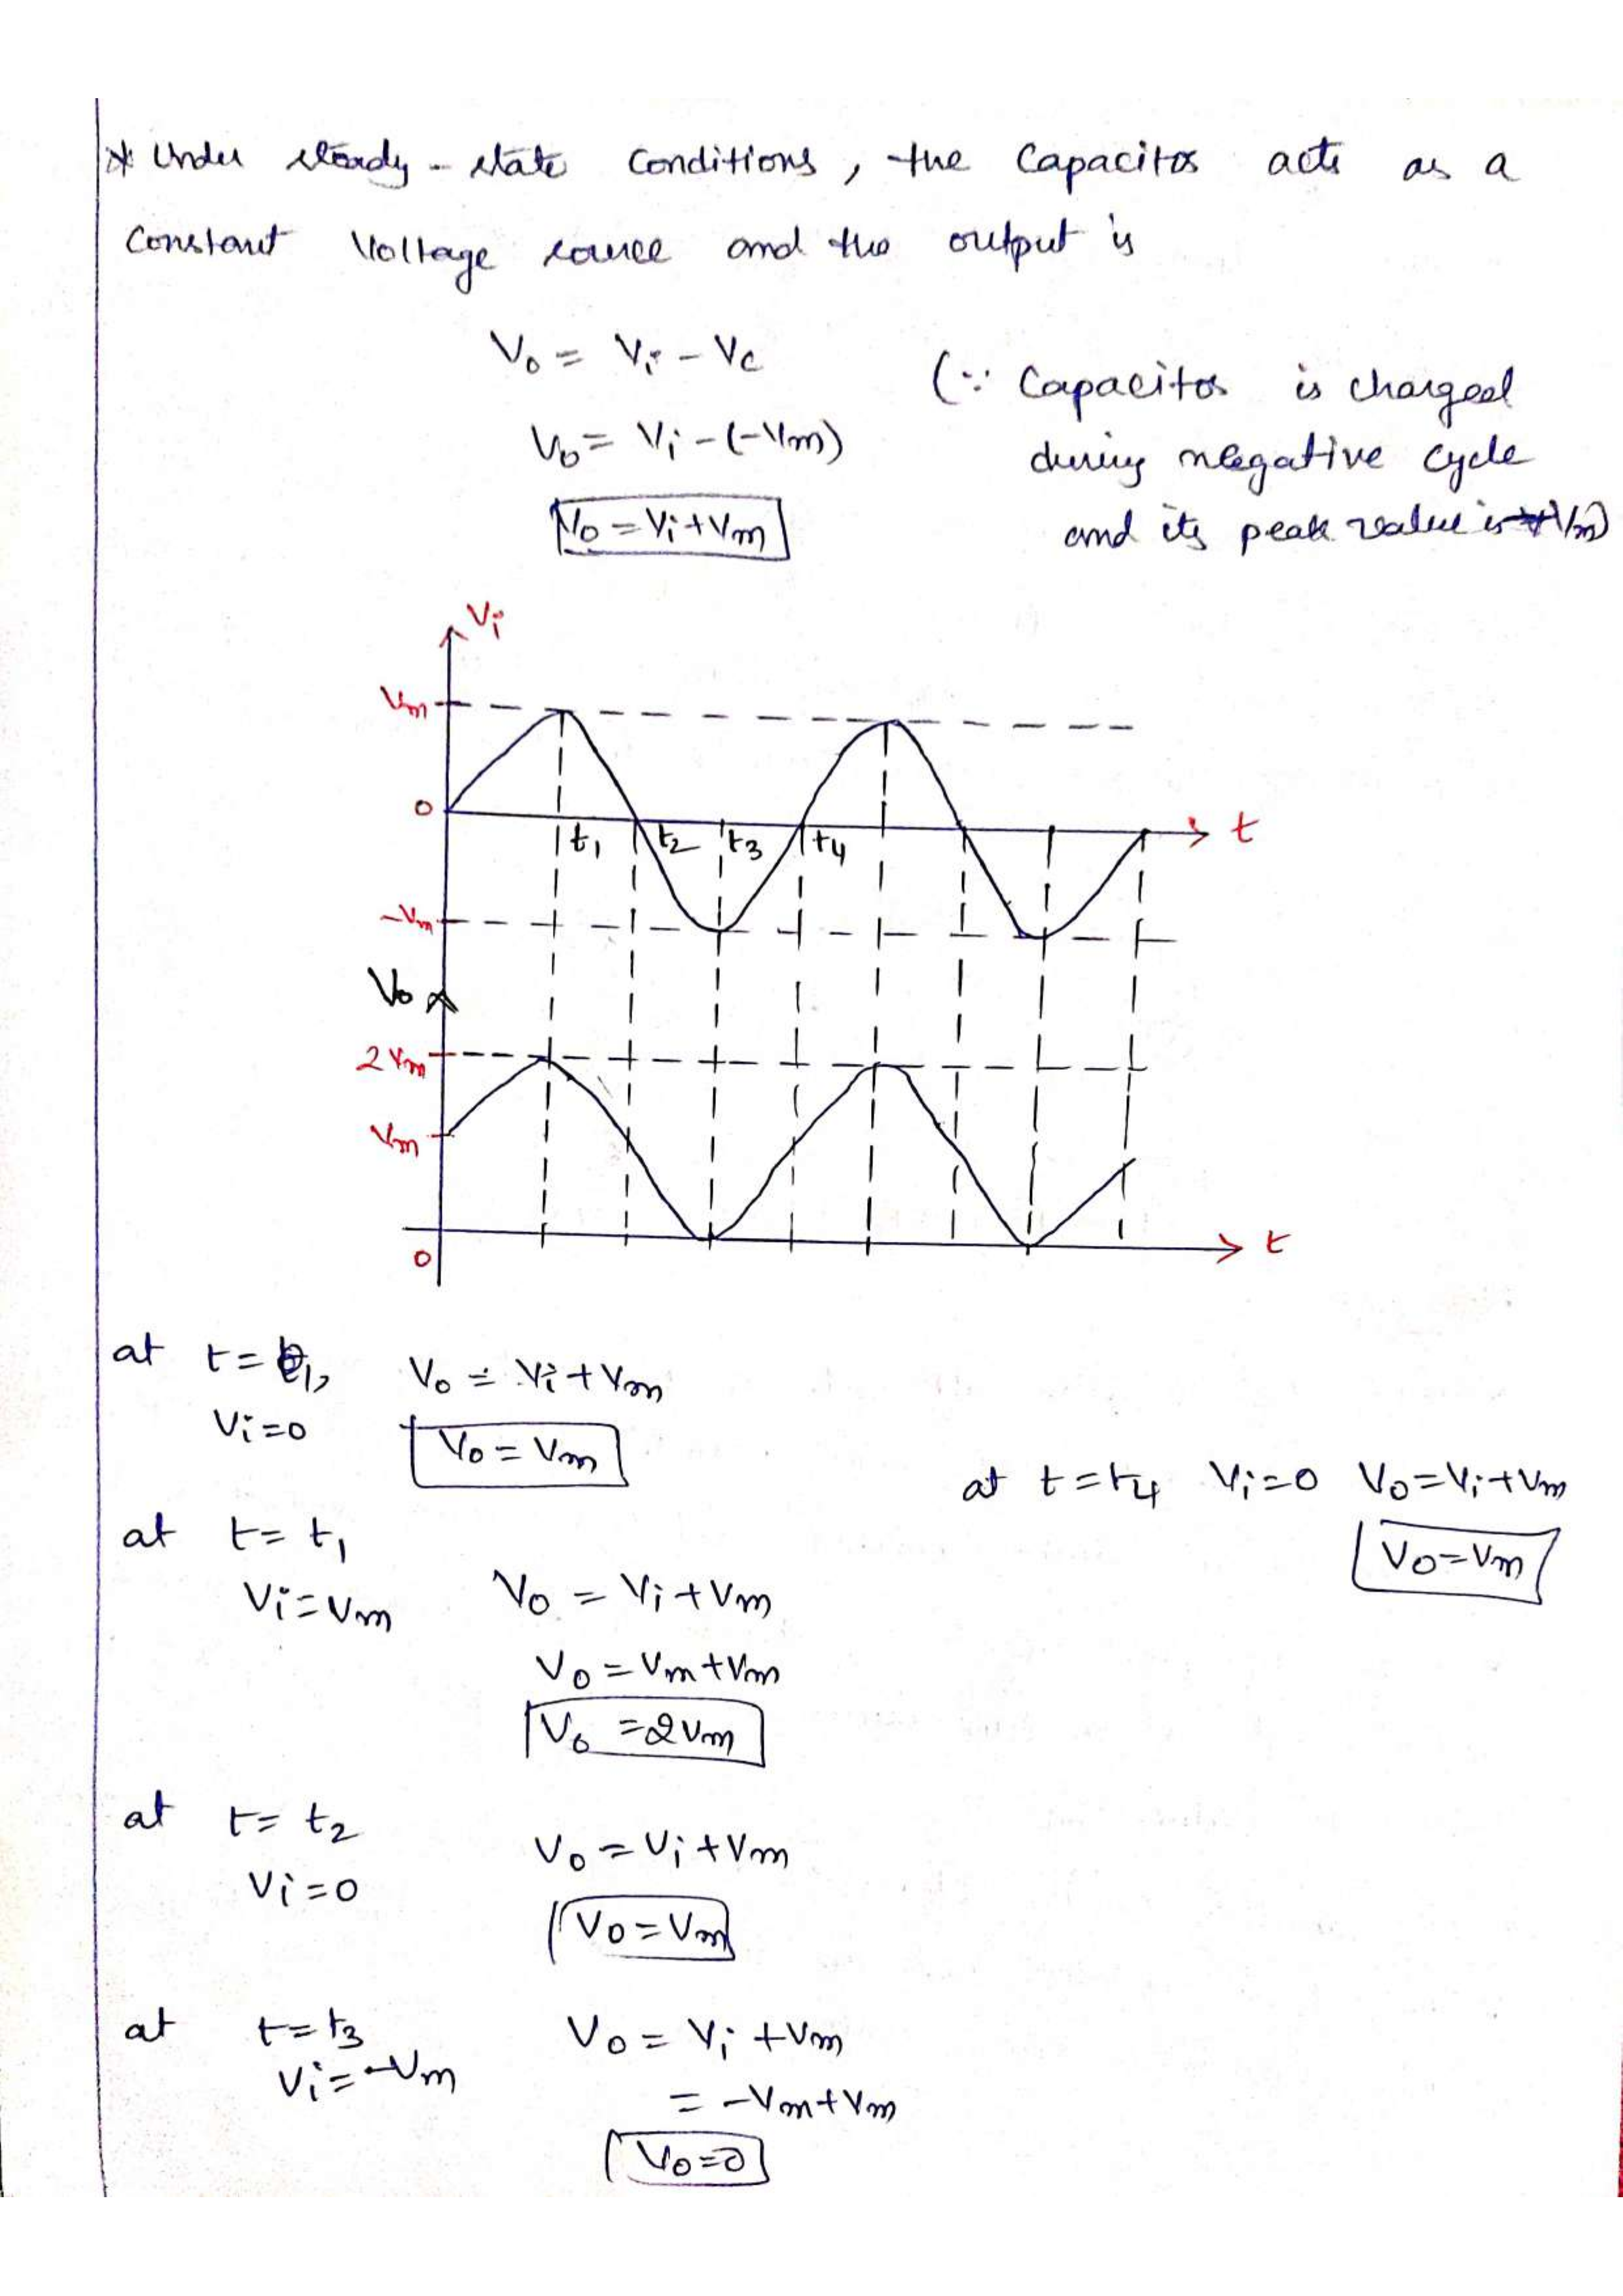 * Under steady-state conditions, the capacitor acts as a
constant voltage source and the output is
V₀ = Vᵢ - Vc
V₀ = Vᵢ-(-Vm)
V₀ = Vᵢ+Vm
(∵ Capacitor is charged
during negative cycle
and its peak value is Vm)
Vᵢ
Vm
0
t
t₁ t₂ t₃ t₄
-Vm
V₀
2Vm
Vm
0
t
at t= V₀ = Vᵢ+Vm
Vᵢ=0
V₀ = Vm
at t=t₄ Vᵢ=0 V₀=Vᵢ+Vm
V₀=Vm
at t= t₁
Vᵢ=Vm V₀ = Vᵢ+Vm
V₀ = Vm+Vm
V₀ =2Vm
at t= t₂
V₀ = Vᵢ+Vm
Vᵢ=0
V₀=Vm
at t=t₃ V₀ = Vᵢ+Vm
Vᵢ=-Vm
= -Vm+Vm
V₀=0